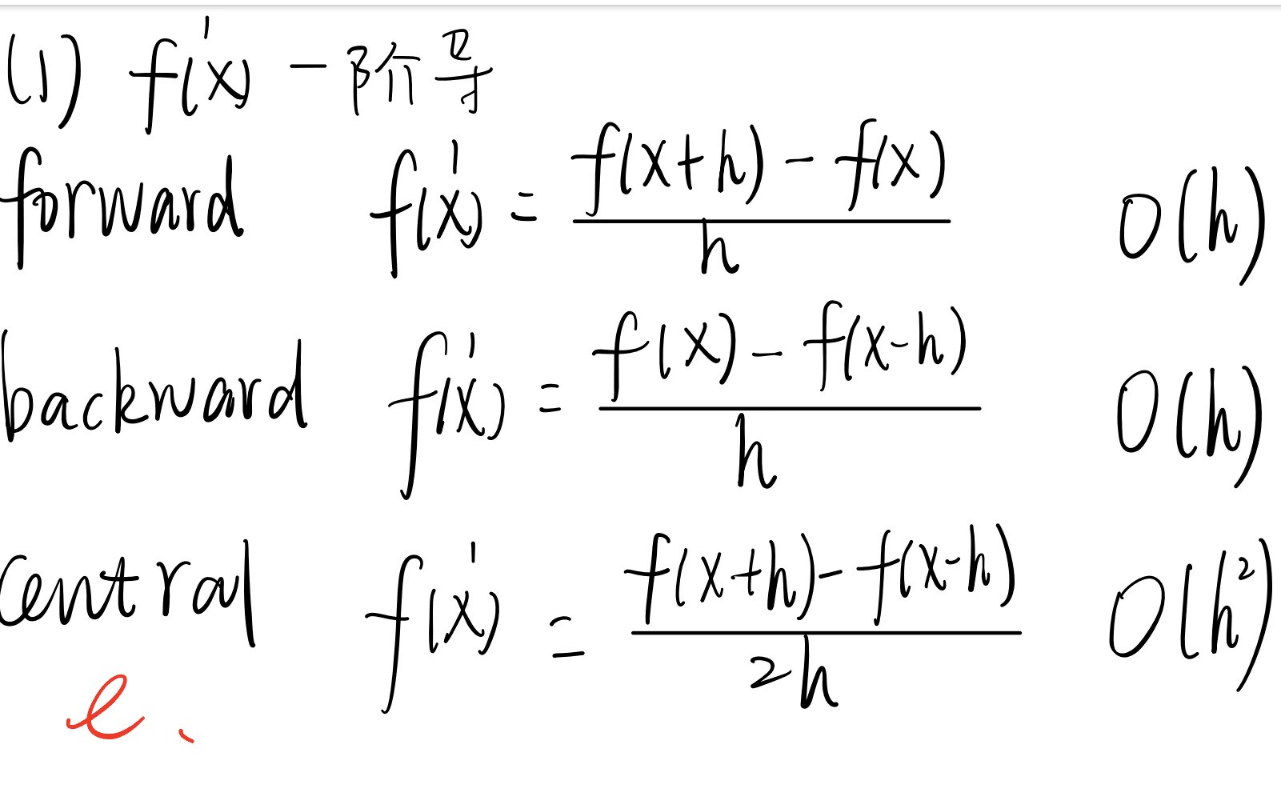 (1) f'(x) 一阶导
forward f'(x) = \frac{f(x+h) - f(x)}{h} O(h)
backward f'(x) = \frac{f(x) - f(x-h)}{h} O(h)
central f'(x) = \frac{f(x+h) - f(x-h)}{2h} O(h^2)
e、